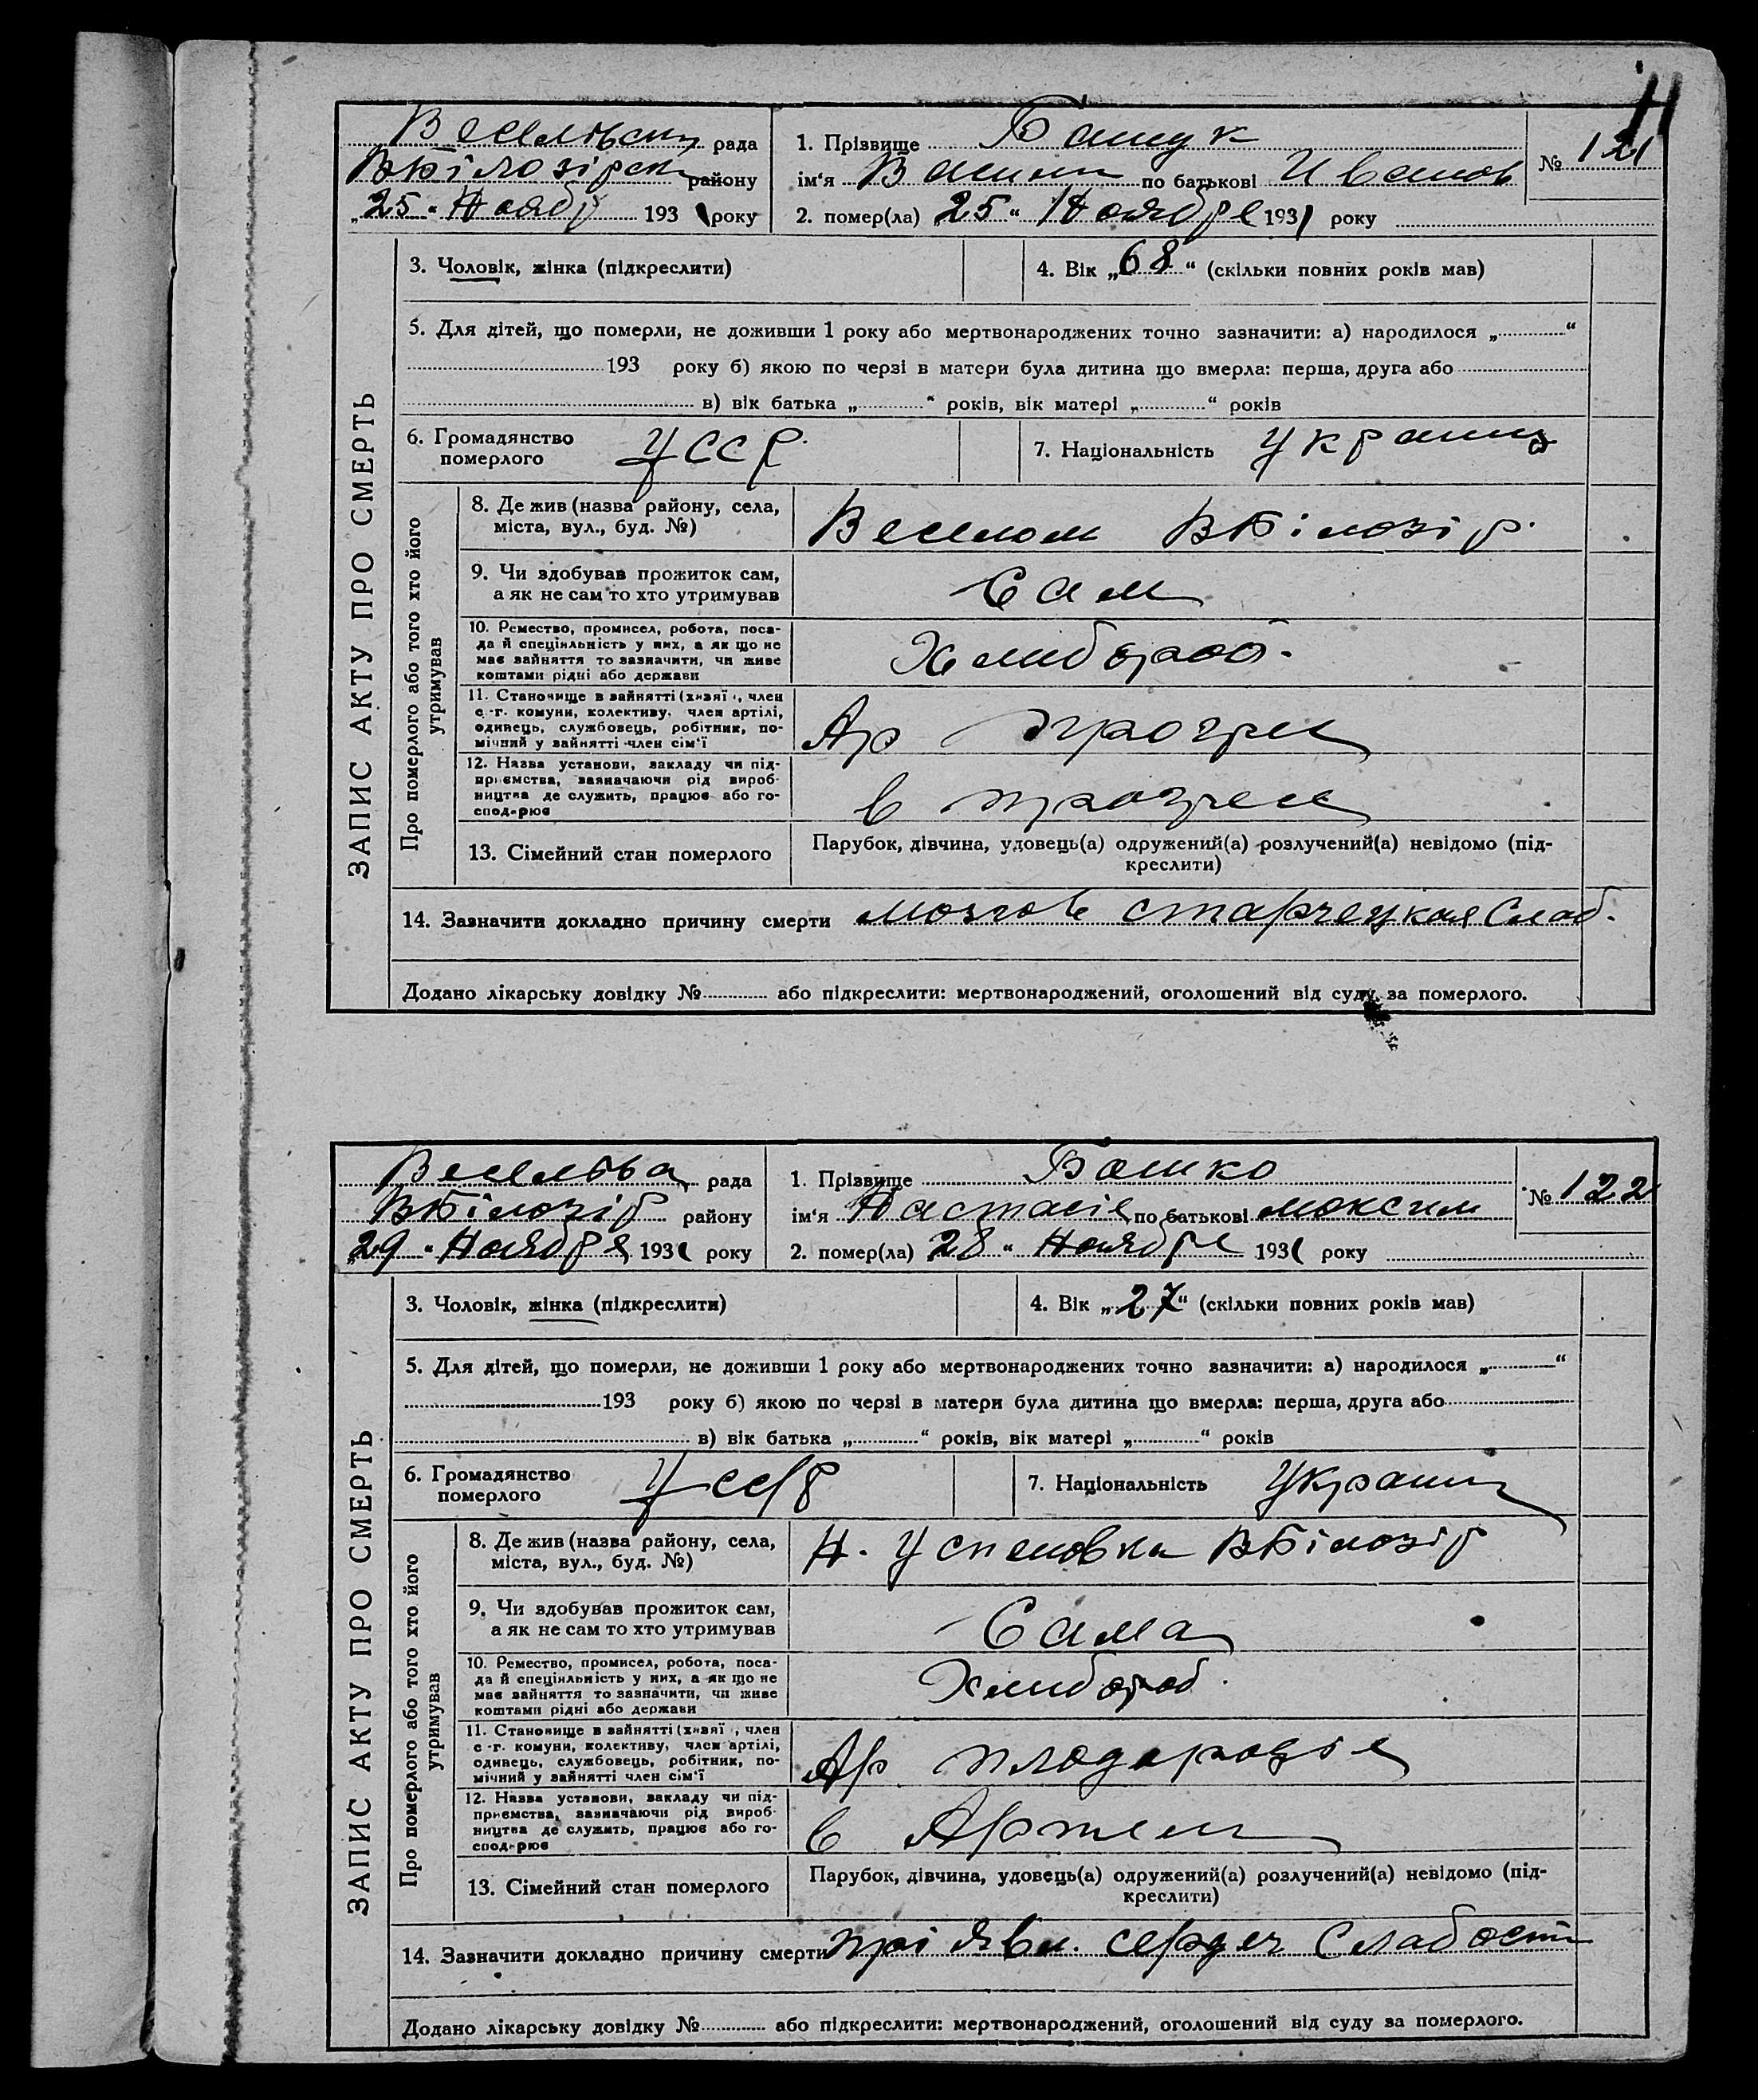 Веселівськ рада
ВБілозірськ району
„25“ Ноябр 1931 року
1. Прізвище Башук
ім‘я по батькові Иванов
№ 121
2. помер(ла) „25“ Ноября 1931 року
ЗАПИС АКТУ ПРО СМЕРТЬ
3. Чоловік, жінка (підкреслити)
4. Вік „68“ (скільки повних років мав)
5. Для дітей, що померли, не доживши 1 року або мертвонароджених точно зазначити: а) народилося „ “
193 року б) якою по черзі в матери була дитина що вмерла: перша, друга або
в) вік батька „ “ років, вік матері „ “ років
6. Громадянство померлого УССР
7. Національність Украинц
Про померлого або того хто його утримував
8. Де жив (назва району, села,
міста, вул., буд. №)
Веселом ВБілозір.
9. Чи здобував прожиток сам,
а як не сам то хто утримував
Сам
10. Ремество, промисел, робота, поса-
да й спеціяльність у них, а як що не
має зайняття то зазначити, чи живе
коштами рідні або держави
Хлибороб.
11. Становище в зайнятті (хазяї, член
с.-г. комуни, колективу, член артілі,
одинець, службовець, робітник, по-
мічний у зайнятті член сім‘ї
Ар
12. Назва установи, закладу чи під-
приємства, зазначаючи рід вироб-
ництва де служить, працює або го-
сподарює
в
13. Сімейний стан померлого
Парубок, дівчина, удовець(а) одружений(а) розлучений(а) невідомо (під-
креслити)
14. Зазначити докладно причину смерти старческая Слаб.
Додано лікарську довідку № або підкреслити: мертвонароджений, оголошений від суду за померлого.
Веселівськ рада
ВБілозір району
„29“ Ноября 1931 року
1. Прізвище Башко
ім‘я Настасіе по батькові Максим
№ 122
2. помер(ла) „28“ Ноября 1931 року
ЗАПИС АКТУ ПРО СМЕРТЬ
3. Чоловік, жінка (підкреслити)
4. Вік „27“ (скільки повних років мав)
5. Для дітей, що померли, не доживши 1 року або мертвонароджених точно зазначити: а) народилося „ “
193 року б) якою по черзі в матери була дитина що вмерла: перша, друга або
в) вік батька „ “ років, вік матері „ “ років
6. Громадянство померлого УССР
7. Національність Украинц
Про померлого або того хто його утримував
8. Де жив (назва району, села,
міста, вул., буд. №)
Н. Успеновка ВБілозір
9. Чи здобував прожиток сам,
а як не сам то хто утримував
Сама
10. Ремество, промисел, робота, поса-
да й спеціяльність у них, а як що не
має зайняття то зазначити, чи живе
коштами рідні або держави
Хлибороб.
11. Становище в зайнятті (хазяї, член
с.-г. комуни, колективу, член артілі,
одинець, службовець, робітник, по-
мічний у зайнятті член сім‘ї
Ар плодородіе
12. Назва установи, закладу чи під-
приємства, зазначаючи рід вироб-
ництва де служить, працює або го-
сподарює
в Артели
13. Сімейний стан померлого
Парубок, дівчина, удовець(а) одружений(а) розлучений(а) невідомо (під-
креслити)
14. Зазначити докладно причину смерти прі явл. сердеч Слабости
Додано лікарську довідку № або підкреслити: мертвонароджений, оголошений від суду за померлого.